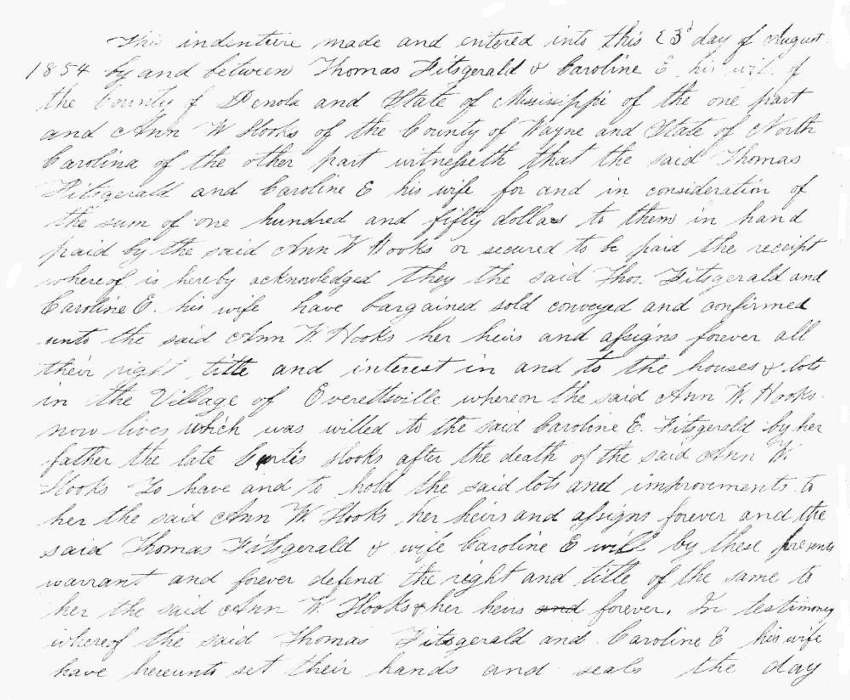 This indenture made and entered into this 23d day of August
1854 by and between Thomas Fitsgerald & Caroline E his wife of
the County of Penola and State of Mississippi of the one part
and Ann W Hooks of the County of Wayne and State of North
Carolina of the other part witnesseth that the said Thomas
Fitsgerald and Caroline E his wife for and in consideration of
the sum of one hundred and fifty dollars to them in hand
paid by the said Ann W Hooks or secured to be paid the receipt
whereof is hereby acknowledged they the said Thos. Fitsgerald and
Caroline E. his wife have bargained sold conveyed and confirmed
unto the said Ann W. Hooks her heirs and assigns forever all
their right title and interest in and to the houses & lots
in the Village of Everettsville whereon the said Ann W. Hooks
now lives which was willed to the said Caroline E. Fitsgerald by her
father the late Curtis Hooks after the death of the said Ann W
Hooks To have and to hold the said lots and improvements to
her the said Ann W. Hooks her heirs and assigns forever and the
said Thomas Fitsgerald & wife Caroline E will by these presents
warrant and forever defend the right and title of the same to
her the said Ann W. Hooks & her heirs and forever. In testimony
whereof the said Thomas Fitsgerald and Caroline E his wife
have hereunto set their hands and seals the day